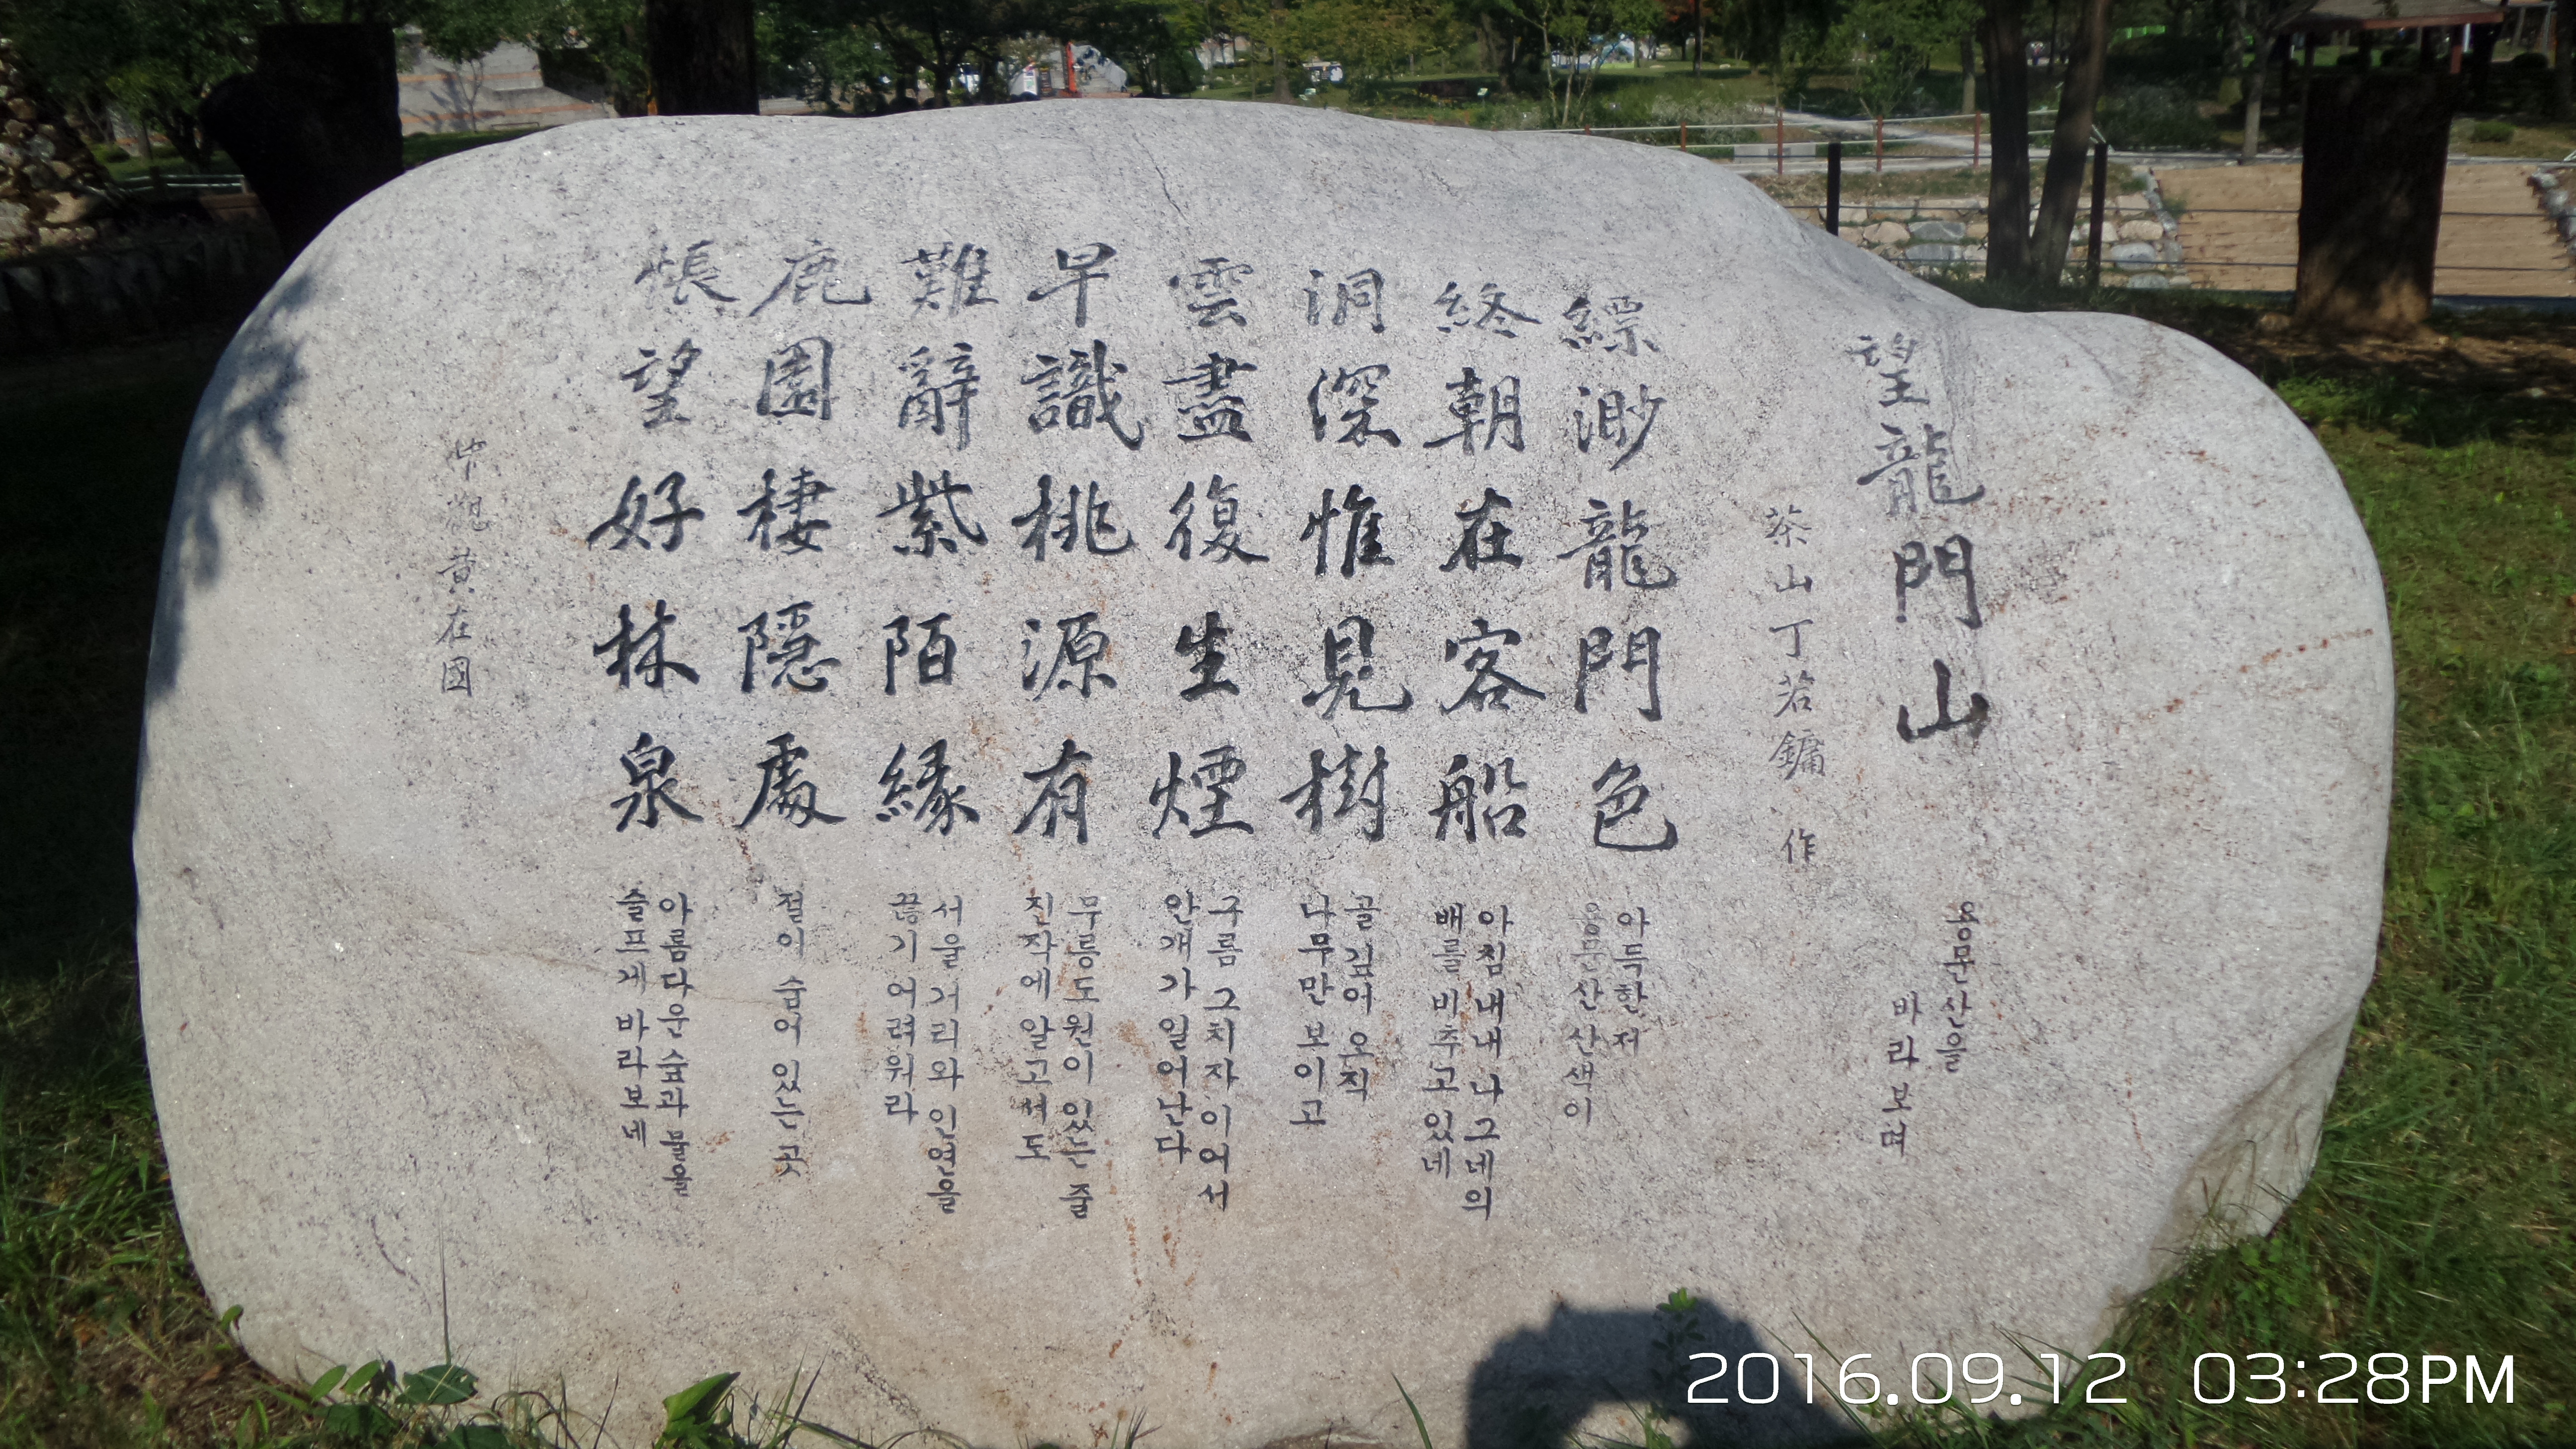 望龍門山
용문산을
바라보며
茶山 丁若鏞 作
縹渺龍門色
아득한 저
용문산 산색이
終朝在客船
아침 내내 나그네의
배를 비추고 있네
洞深惟見樹
골 깊어 오직
나무만 보이고
雲盡復生煙
구름 그치자 이어서
안개가 일어난다
早識桃源有
무릉도원이 있는 줄
진작에 알고서도
難辭紫陌緣
서울 거리와 인연을
끊기 어려워라
鹿園棲隱處
절이 숨어 있는 곳
悵望好林泉
아름다운 숲과 물을
슬프게 바라보네
中觀 黄在國
2016.09.12 03:28PM